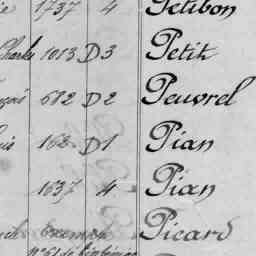 1737 4 Petibon
Charles 1013 D 3 Petit
682 D 2 Peuvrel
162 D 1 Pian
1637 4 Pian
Picard